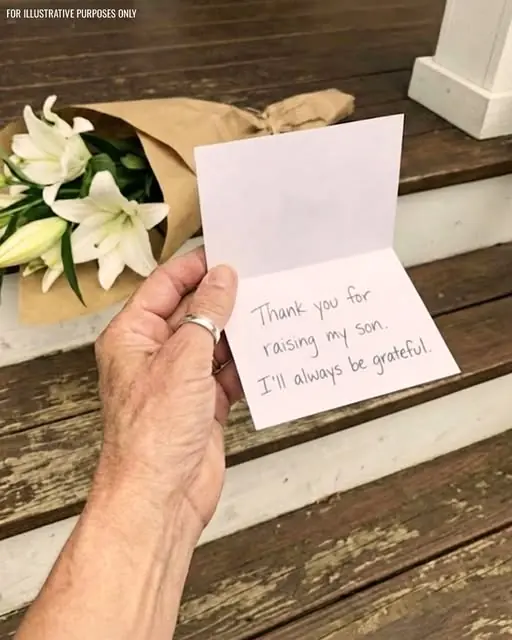 FOR ILLUSTRATIVE PURPOSES ONLY
Thank you for
raising my son.
I'll always be grateful.